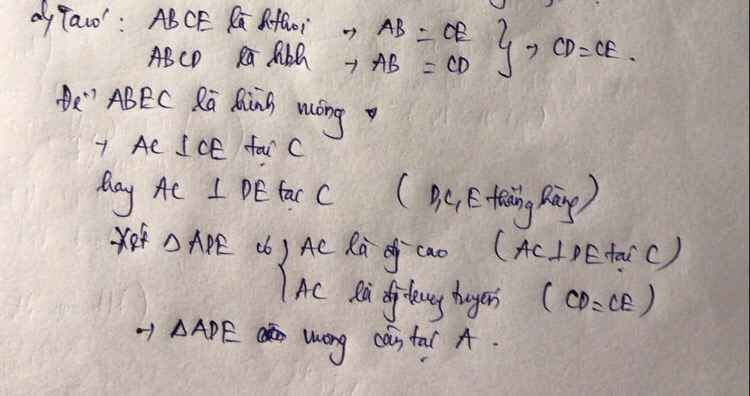 d, Ta có: ABCE là hthoi → AB = CE } → CD = CE.
ABCD là hbh → AB = CD
Để ABEC là hình vuông
→ AC ⊥ CE tại C
hay AC ⊥ DE tại C (D, C, E thẳng hàng)
Xét △ADE có { AC là đg cao (AC ⊥ DE tại C)
AC là đg trung tuyến (CD = CE)
→ △ADE vuông cân tại A.